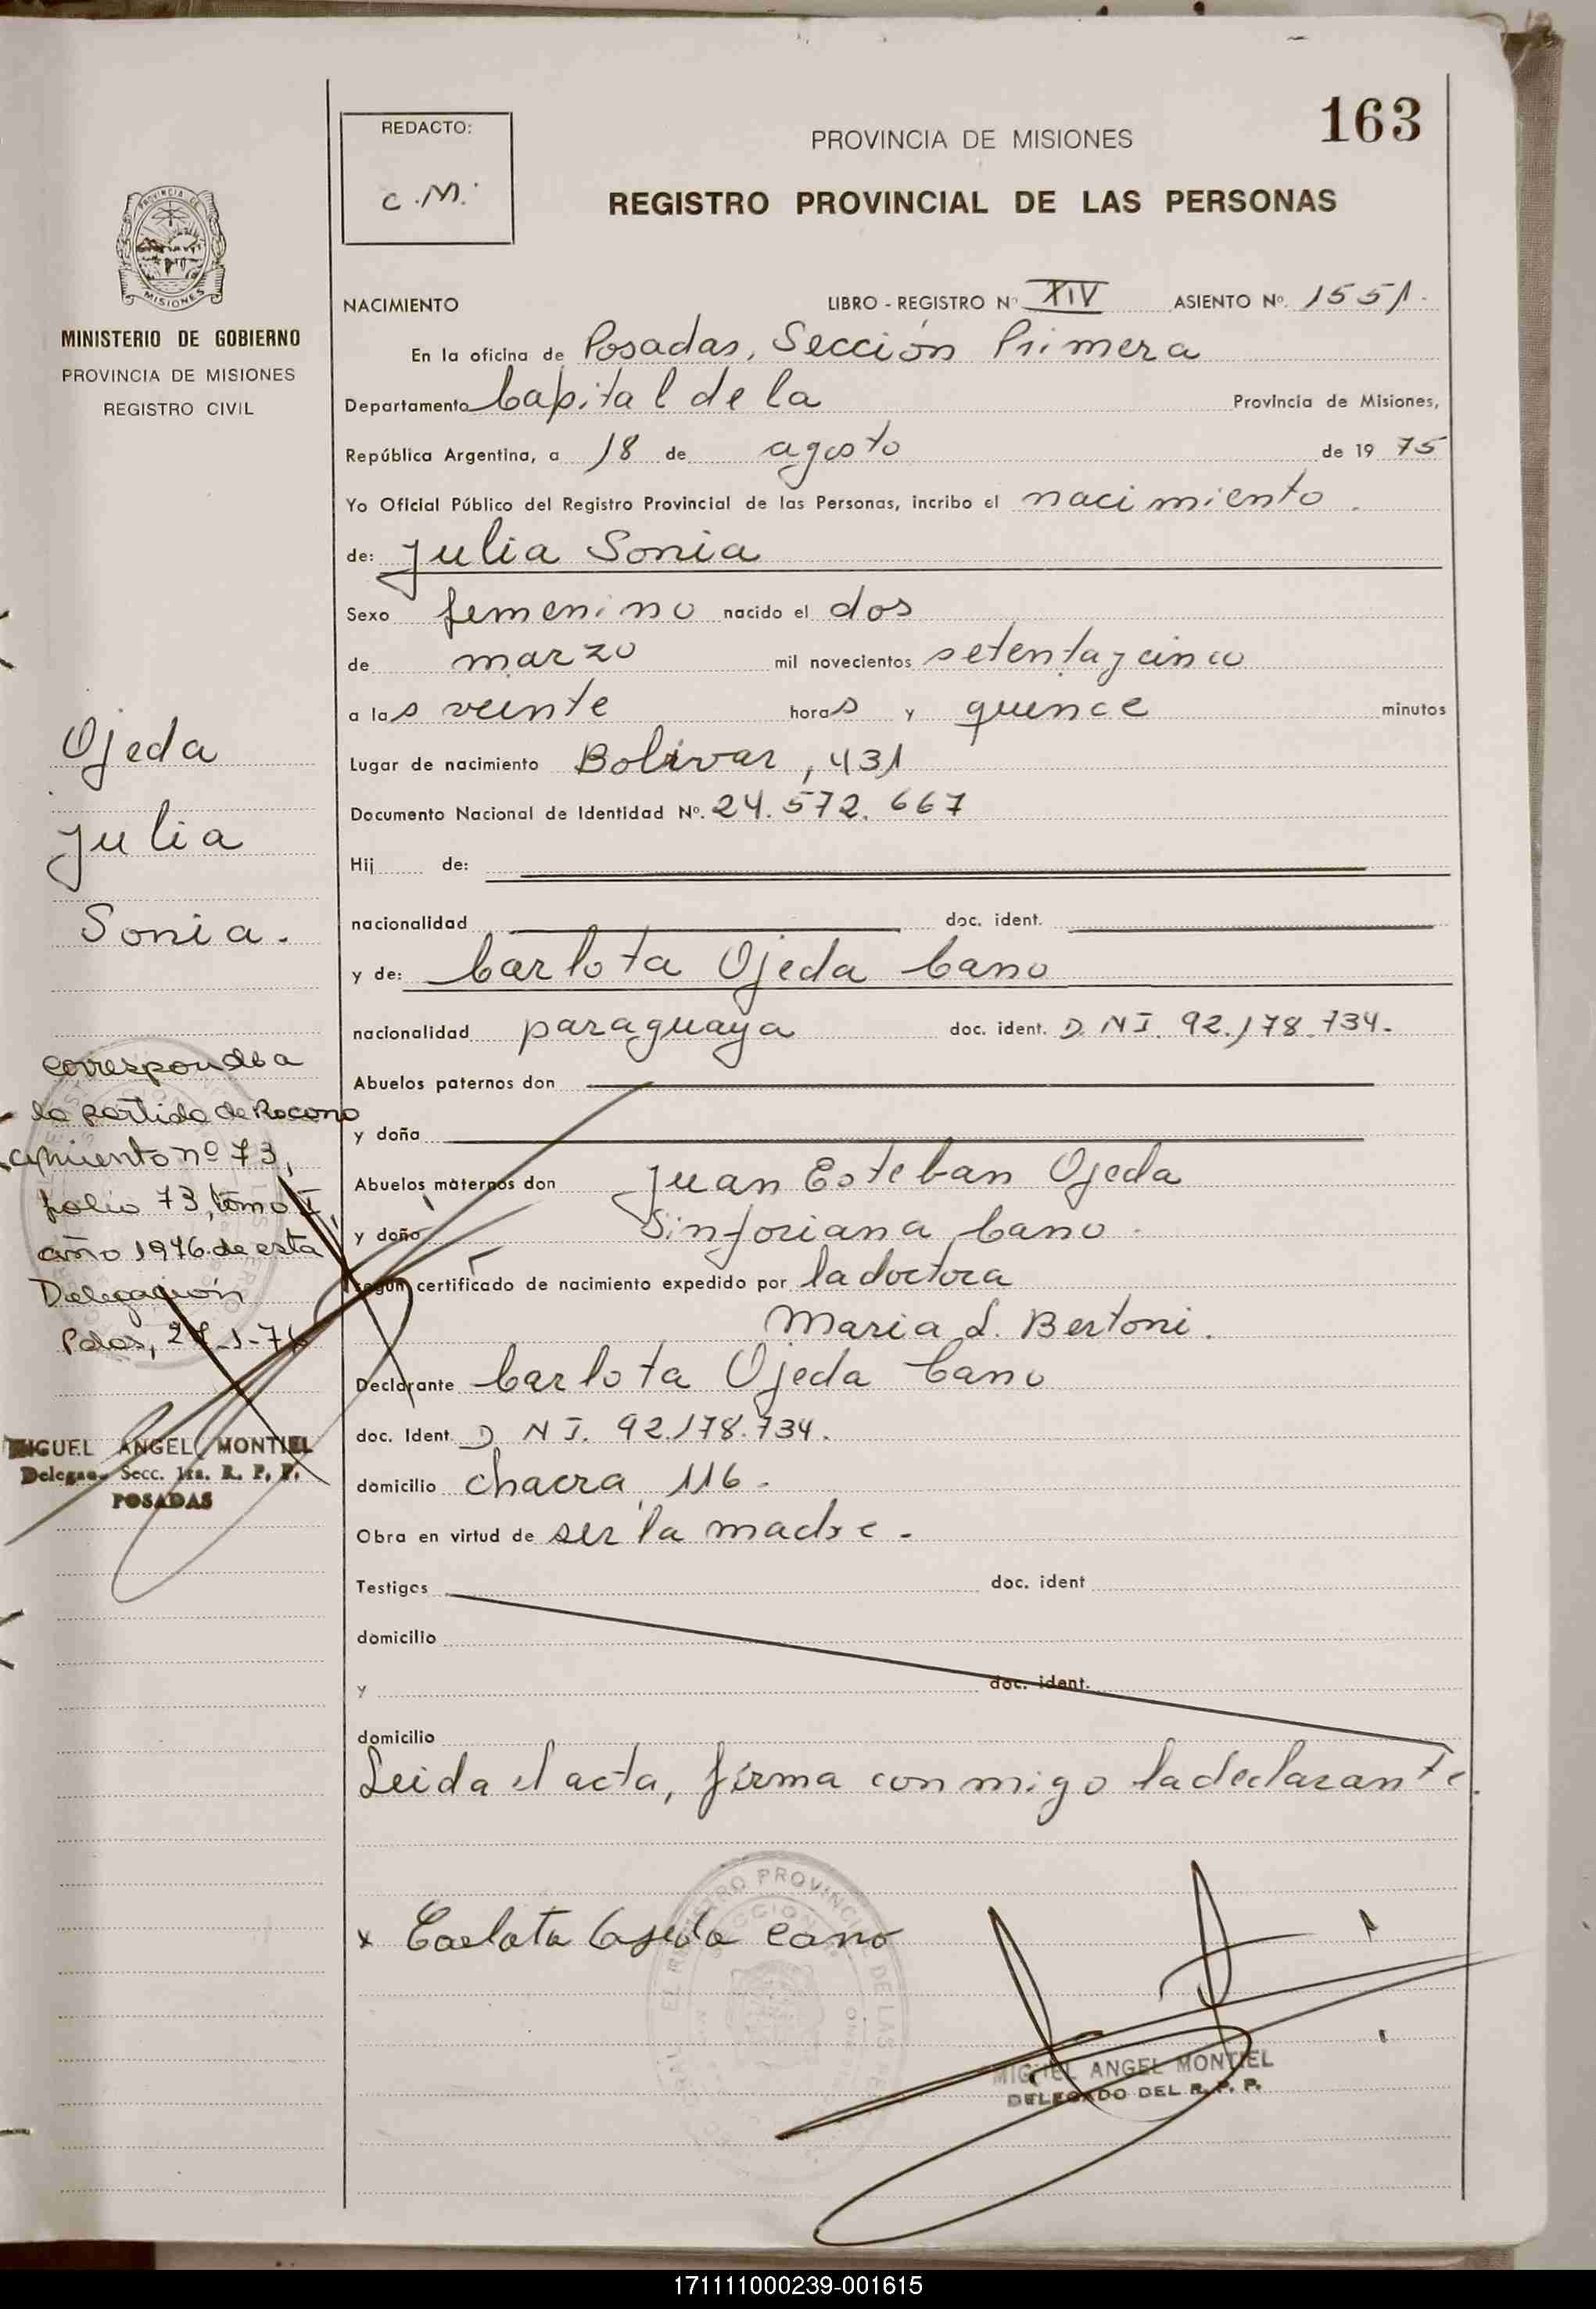 163
REDACTO:
C.M.
PROVINCIA DE MISIONES
REGISTRO PROVINCIAL DE LAS PERSONAS
MISIONES
MINISTERIO DE GOBIERNO
PROVINCIA DE MISIONES
REGISTRO CIVIL
NACIMIENTO LIBRO - REGISTRO Nº XIV ASIENTO Nº. 1551.
En la oficina de Posadas, Sección Primera
Departamento Capital de la Provincia de Misiones,
República Argentina, a 18 de agosto de 19 75
Yo Oficial Público del Registro Provincial de las Personas, incribo el nacimiento.
de: Julia Sonia
Sexo femenino nacido el dos
de marzo mil novecientos setenta y cinco
a las veinte horas y quince minutos
Lugar de nacimiento Bolivar, 431
Documento Nacional de Identidad Nº. 24.572.667
Hij de:
nacionalidad doc. ident.
y de: Carlota Ojeda Cano
nacionalidad paraguaya doc. ident. D.N.I. 92.178.734.
Abuelos paternos don
y doña
Abuelos maternos don Juan Esteban Ojeda
y doña Sinforiana Cano.
según certificado de nacimiento expedido por la doctora
Maria L. Bertoni.
Declarante Carlota Ojeda Cano
doc. Ident. D.N.I. 92.178.734.
domicilio chacra 116.
Obra en virtud de ser la madre.
Testigos doc. ident
domicilio
y doc. ident.
domicilio
Leida el acta, firma conmigo la declarante.
x Carlota Ojeda Cano
MIGUEL ANGEL MONTIEL
DELEGADO DEL R. P. P.
Ojeda
Julia
Sonia.
corresponde a
la partida de Recono
cimiento nº 73,
folio 73, tomo I,
año 1976 de esta
Delegación
Pdas, 27-1-76
MIGUEL ANGEL MONTIEL
Delegado Secc. 1ra. R. P. P.
POSADAS
171111000239-001615